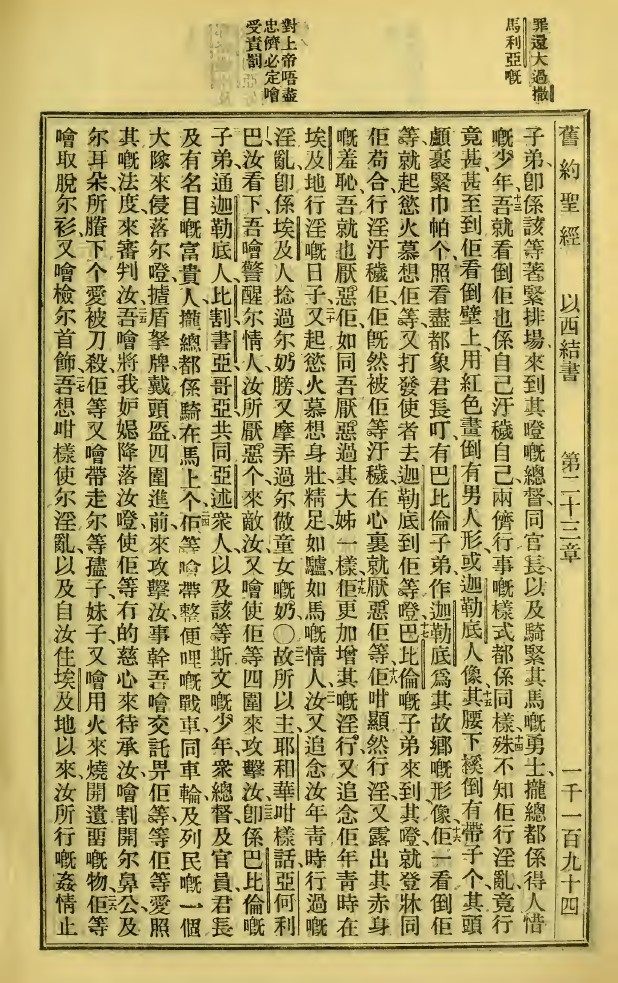 罪還大過撒
馬利亞嘅
對上帝唔盡
忠儕必定噲
受責罰
舊約聖經 以西結書 第二十三章 一千一百九十四
子弟卽係該等著緊排場來到其嶝嘅總督同官長以及騎緊其馬嘅勇士攏總都係得人惜
嘅少年十三吾就看倒佢也係自己汙穢自己兩儕行事嘅樣式都係同樣十四殊不知佢行淫亂竟行
竟甚甚至到佢看倒壁上用紅色畫倒有男人形或迦勒底人像十五其腰下縘倒有帶子个其頭
顱裹緊巾帕个照看盡都象君長叮有巴比倫子弟作迦勒底爲其故鄉嘅形像十六佢一看倒佢
等就起慾火慕想佢等又打發使者去迦勒底到佢等嶝十七巴比倫嘅子弟來到其嶝就登牀同
佢苟合行淫汙穢佢佢旣然被佢等汙穢在心裏就厭惡佢等十八佢咁顯然行淫又露出其赤身
嘅羞恥吾就也厭惡佢如同吾厭惡過其大姊一樣十九佢更加增其嘅淫行又追念佢年靑時在
埃及地行淫嘅日子二十又起慾火慕想身壯精足如驢如馬嘅情人二一汝又追念汝年靑時行過嘅
淫亂卽係埃及人捻過尔奶膀又摩弄過尔做童女嘅奶〇二二故所以主耶和華咁樣話亞何利
巴汝看下吾噲警醒尔情人汝所厭惡个來敵汝又噲使佢等四圍來攻擊汝二三卽係巴比倫嘅
子弟通迦勒底人比割書亞哥亞共同亞述衆人以及該等斯文嘅少年衆總督及官員君長
及有名目嘅富貴人攏總都係騎在馬上个二四佢等噲帶整便哩嘅戰車同車輪及列民嘅一個
大隊來侵落尔嶝擄盾孥牌戴頭盔四圍進前來攻擊汝事幹吾噲交託畀佢等等佢等愛照
其嘅法度來審判汝二五吾噲將我妒媳降落汝嶝使佢等冇的慈心來待承汝噲割開尔鼻公及
尔耳朵所賸下个愛被刀殺佢等又噲帶走尔等孻子妹子又噲用火來燒開遺畱嘅物二六佢等
噲取脫尔衫又噲檢尔首飾二七吾想咁樣使尔淫亂以及自汝住埃及地以來汝所行嘅姦情止